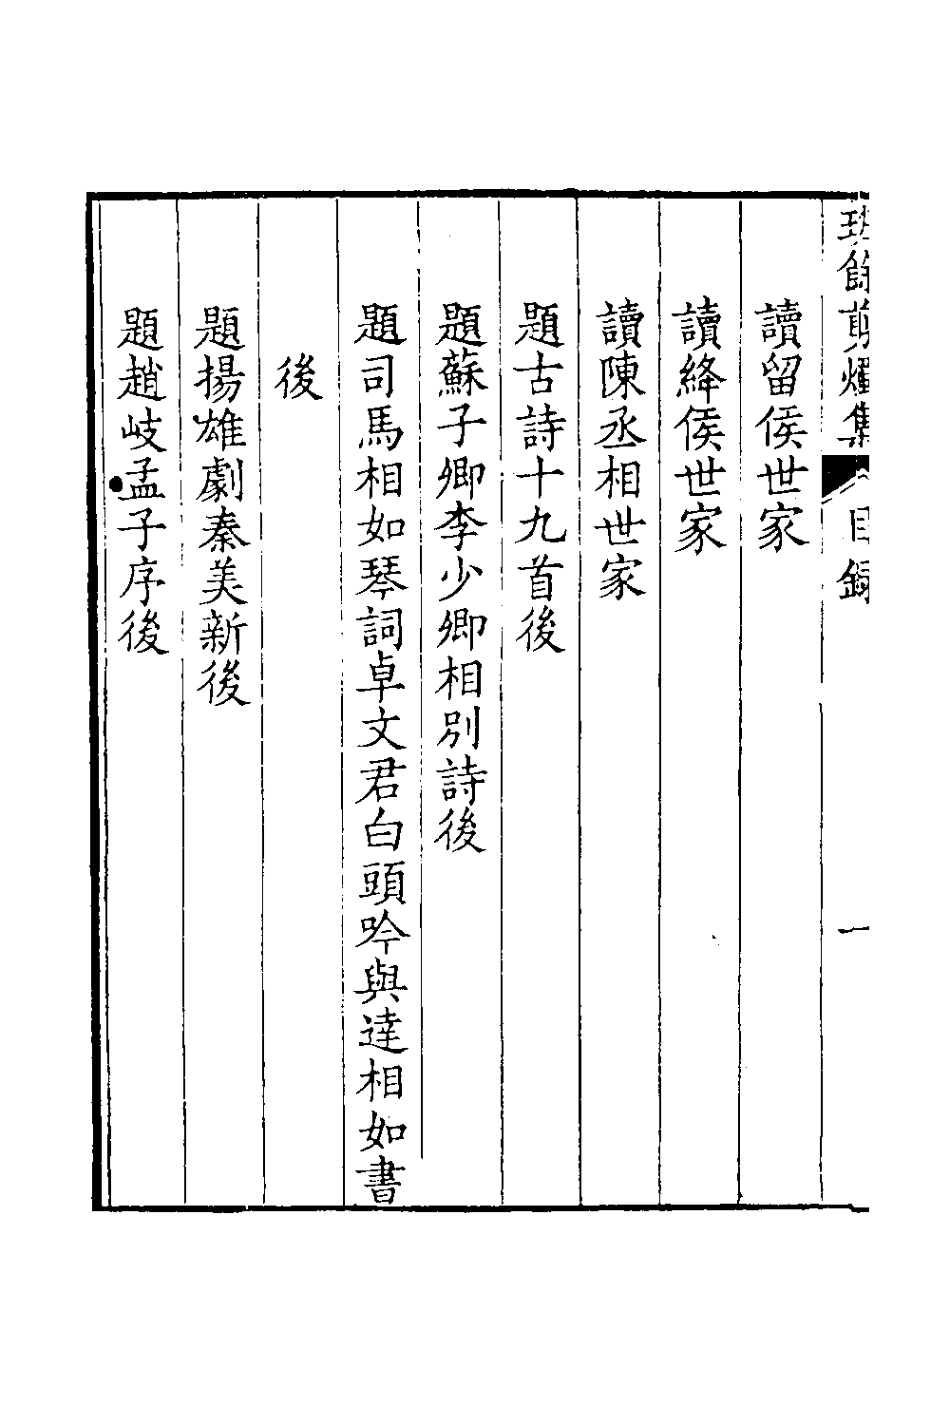 班餘剪燭集 目録 一
讀留侯世家
讀絳侯世家
讀陳丞相世家
題古詩十九首後
題蘇子卿李少卿相別詩後
題司馬相如琴詞卓文君白頭吟與達相如書
後
題揚雄劇秦美新後
題趙岐孟子序後